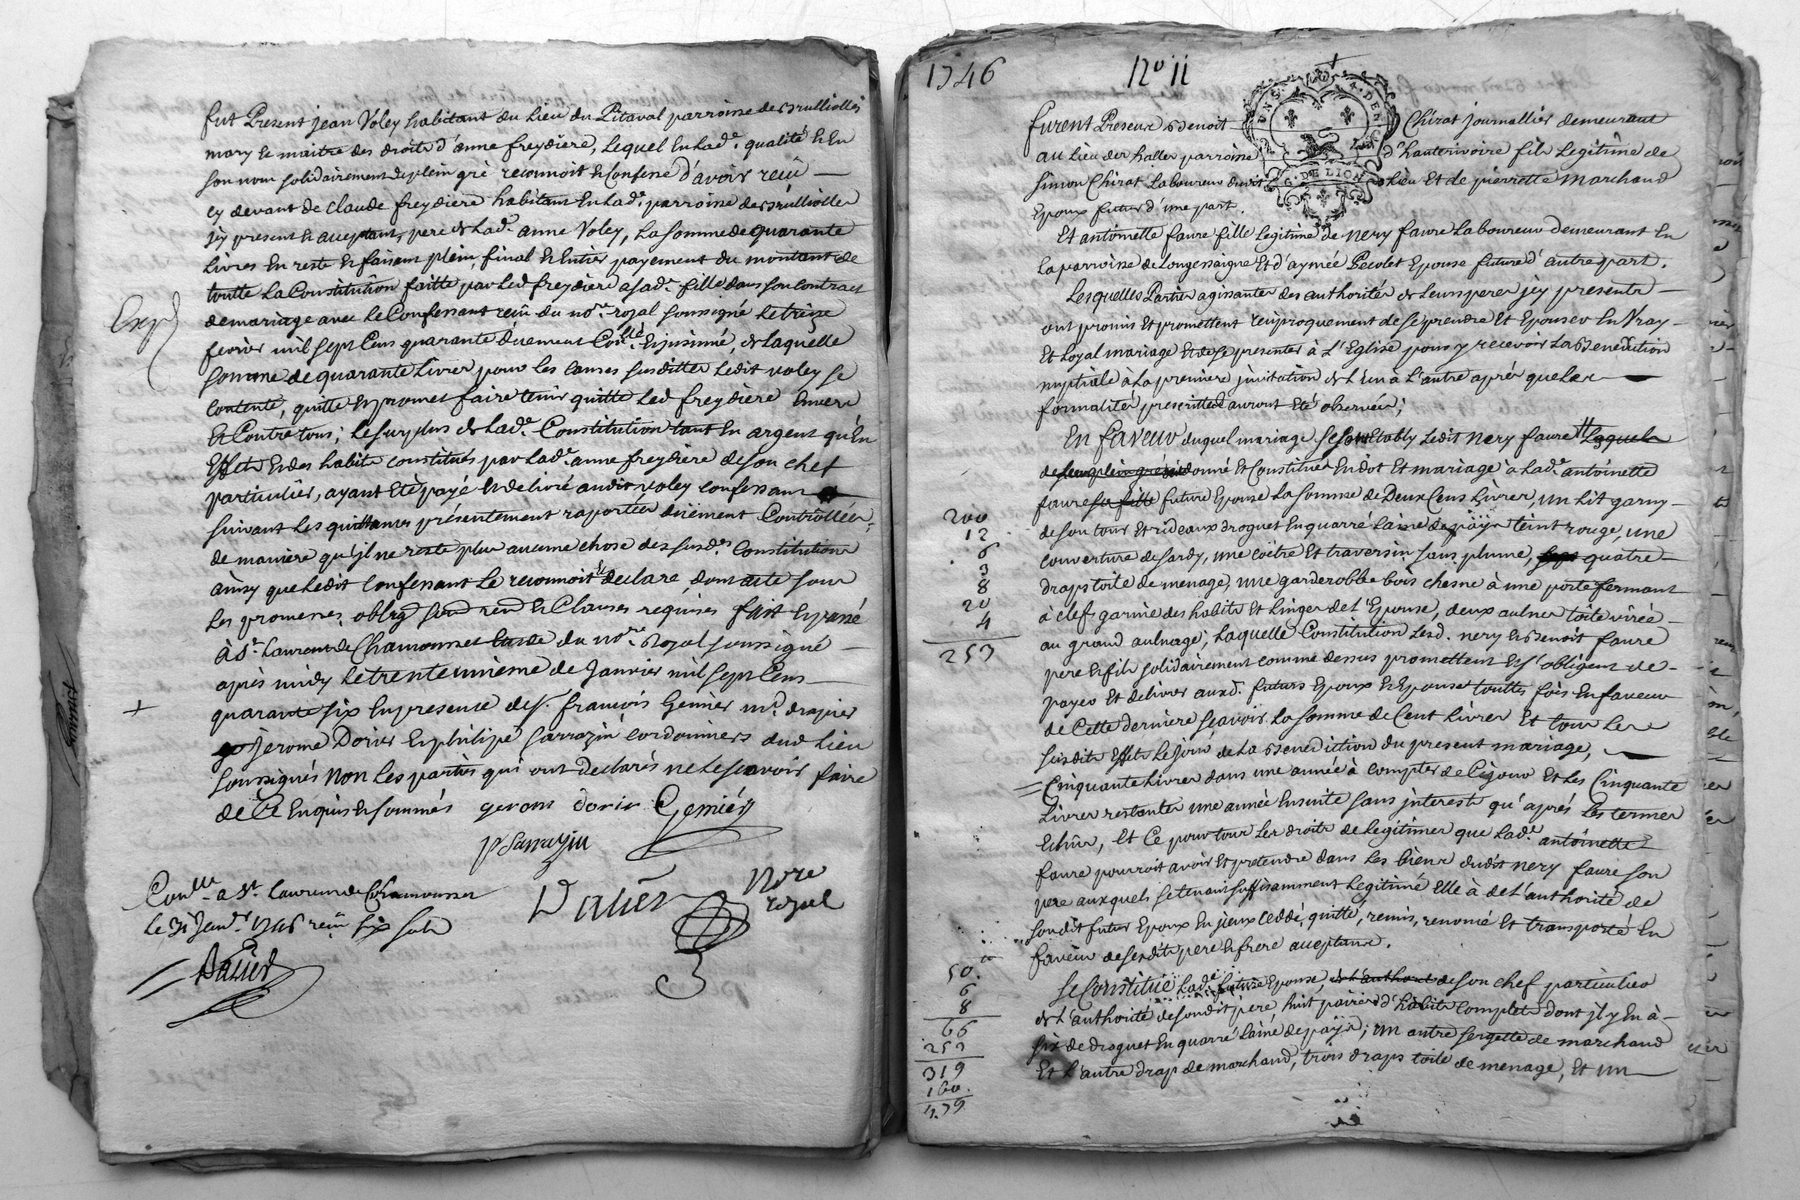 fut Present jean Voley habitant du Lieu du Pitaval parroisse de Brulliolles
mary et maitre des droits d'anne freydiere, Lequel en lad.e qualité et en
son nom solidairement de plein gré reconnoit et confesse d'avoir reçû
cy devant de claude freydiere habitant en lad.e parroisse de Brulliolles
jcy present et acceptant, pere de lad.e anne Voley, la somme de quarante
Livres en reste et faisant plein, final et entier payement du montant de
toutte la Constitution faitte par led freydiere a sad.e fille dans son contract
de mariage avec le Confessant reçû du no.re royal soussigné le treize
fevrier mil sept cens quarante düement Con.llé et jnsinué, de laquelle
somme de quarante Livres pour les causes susdittes ledit voley se
contente, quitte et promet faire tenir quitte led freydiere envers
et Contre tous; le surplus de lad.e Constitution tant en argent qu'en
Effets et des habits constitués par lad.e anne freydiere de son chef
particulier, ayant eté payé et delivré audit voley confessant
suivant les quittances présentement raportées düement Controllées,
de maniere qu'jl ne reste plus aucune chose des susd.es Constitutions
ainsy que ledit confessant le reconnoit et declare, dont acte sous
les promesses, oblig. soum. ren. et Clauses requises fait et passé
à S.t Laurent de Chamousset etude du no.re Royal soussigné
après midy le trente unieme de Janvier mil sept cens
+ quarante six en presence de s.r françois Gemier m.d drapier
jerome Dorier et philipe sarrazin cordonniers dud Lieu
soussignés non les parties qui ont declarés ne le scavoir faire
de ce enquis et sommés gerome dorier Gemier
p Sarrazin
Con.llé a S.t Laurent de Chamousset
le 31 Janv.r 1746 reçû six sols
Dalier
Nore
royal
1746 No 11
furent Presens Benoit Chirat journallier demeurant
au Lieu des halles parroisse d'hauterivoire fils Legitime de
simon Chirat Laboureur dudit Lieu et de pierrette Marchand
Epoux futur d'une part.
Et antoinette faure fille Legitime de nery faure Laboureur demeurant en
la parroisse de Longessaigne et d'aymée Pecolet Epouse future d'autre part.
Lesquelles Parties agissantes des authorités de leurs peres jcy presents
ont promis et promettent reciproquement de se prendre et Epouser en Vray
et Loyal mariage et de se presenter à L'Eglise pour y recevoir la Benediction
nuptiale à la premiere jnvitation de l'un a l'autre après que les
formalités prescrittes auront eté observées;
En faveur duquel mariage se sont Etably ledit nery faure Laquels
de leur plein gré ont donné et Constitué en dot et mariage a lad.e antoinette
faure sa fille future Epouse la somme de Deux Cens Livres, un Lit garny
de son tour et rideaux droguet en quarré Laine de païs teint rouge, une
couverture de sardy, une coëtre et traversin sans plume, quatre
draps toile de menage, une garderobbe bois chesne à une porte fermant
à clef garnie des habits et Linges de l'Epouse, deux aulnes toile cirée
au grand aulnage, laquelle Constitution lesd. nery et Benoit faure
pere et fils solidairement comme dessus promettent et s'obligent de
payer et delivrer auxd. futurs Epoux et Epouse touttes fois en faveur
de Cette derniere scavoir la somme de Cent Livres et tous les
susdits effets le jour de la Benediction du present mariage,
Cinquante Livres dans une année à compter de Ce jour et les Cinquante
Livres restantes une année Ensuite sans jnterests qu'après les termes
echûs, et Ce pour tous les droits de legitimes que lad.e antoinette
faure pourroit avoir et pretendre dans les biens dudit nery faure son
pere auxquels se tenant suffisamment legitimé Elle à de l'authorité de
son dit futur Epoux en jceux ceddé, quitté, remis, renoncé et transporté en
faveur de sesdits pere et frere acceptans.
Se Constitue lad.e future Epouse, de son chef particulier
de l'authorité de son dit pere, huit paires d'habits complets dont jl y en à
six de droguet en quarré Laine de païs; un autre sergette de marchand
Et l'autre drap de marchand, trois draps toile de menage, et un
200
12
6
3
8
20
4
253
50
6
8
66
253
319
160
479